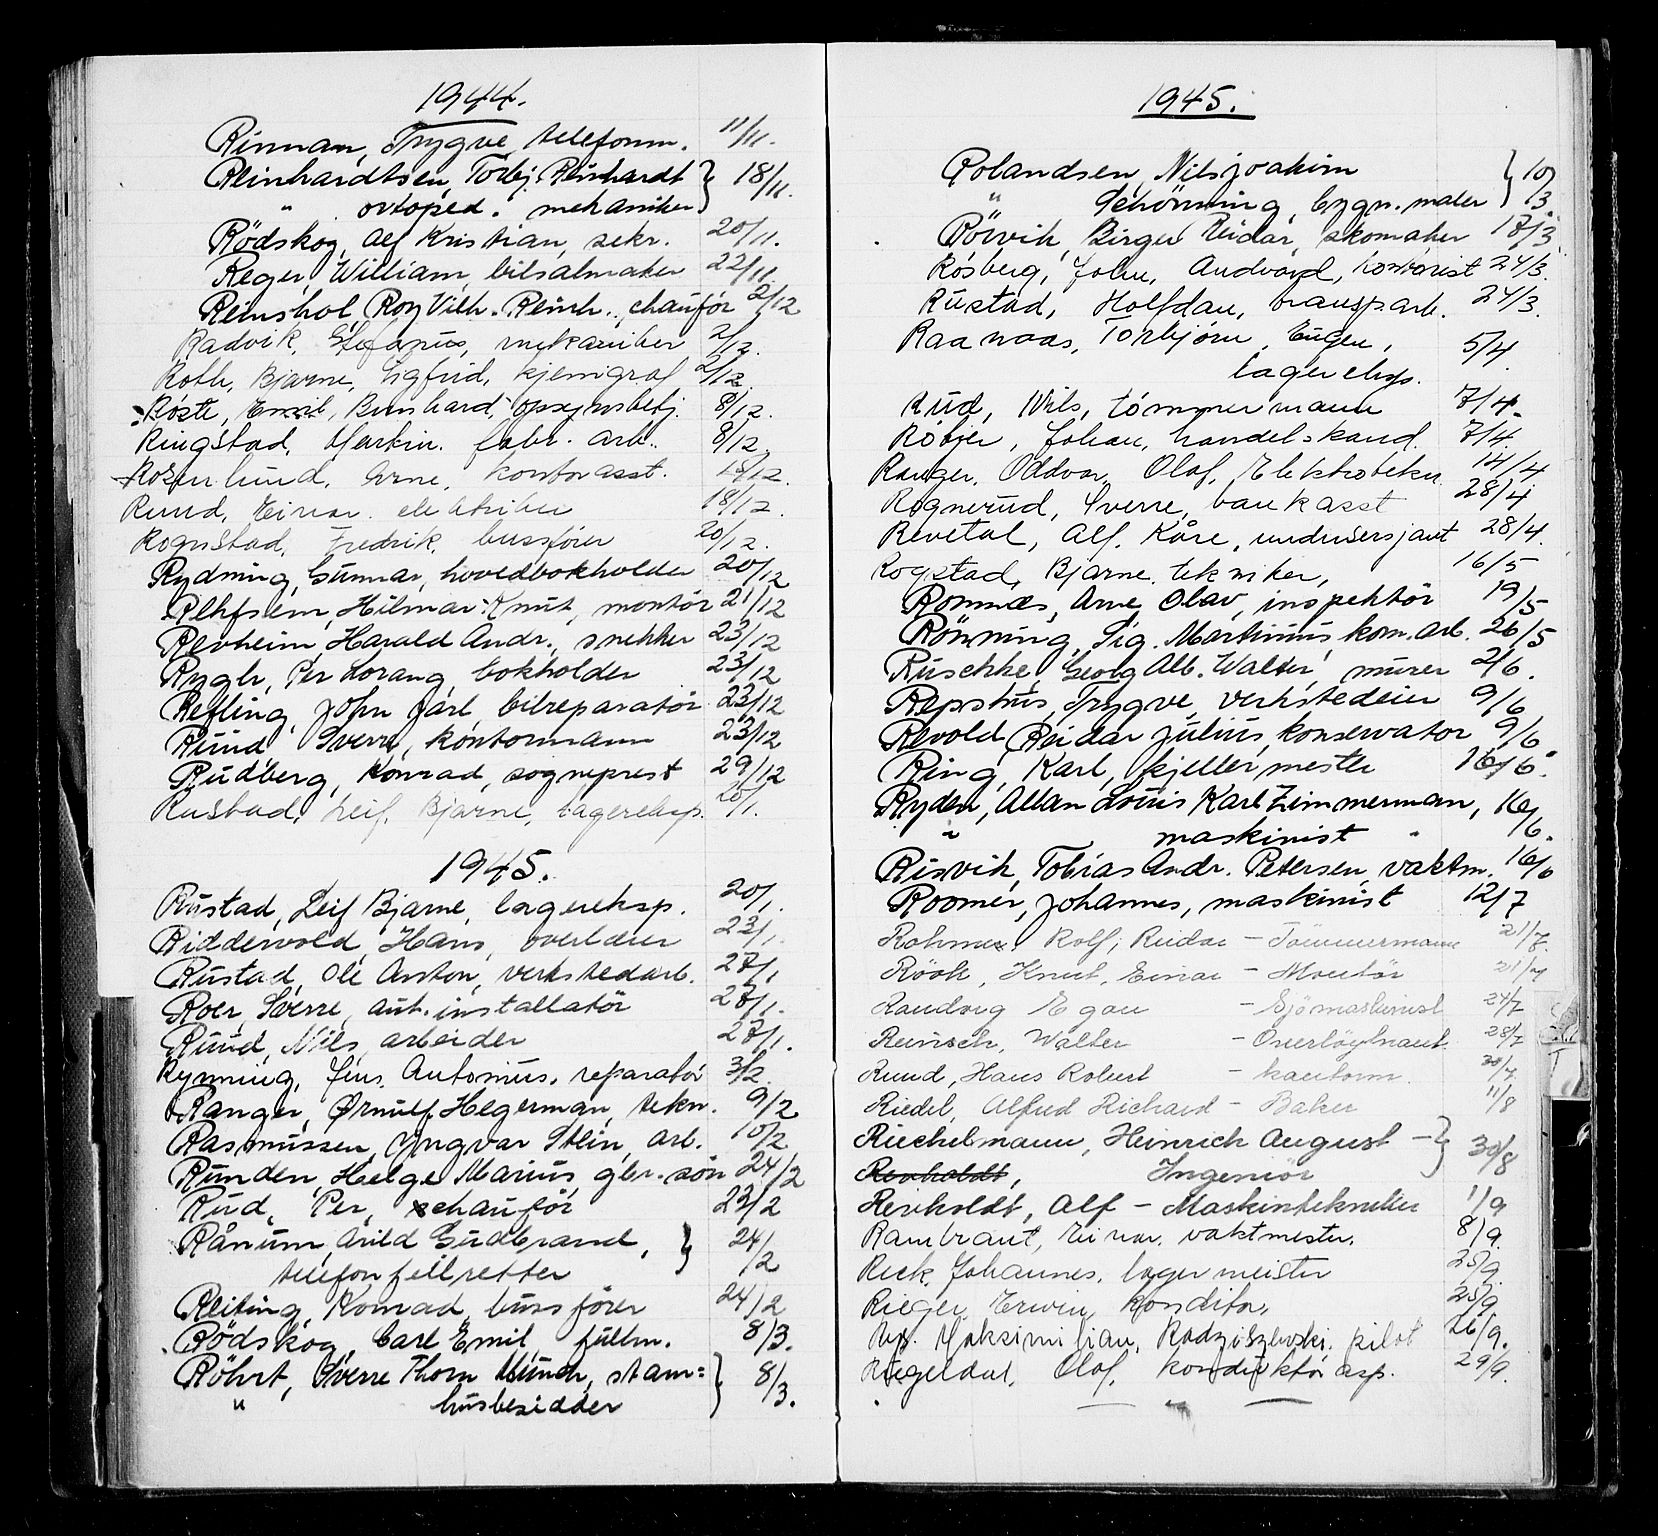 1944.
Rinnan, Trygve, telefonm. 11/11.
Reinhardtsen, Torbj. Reinhardt } 18/11.
" ortoped. mekaniker
Rödskog, Alf Kristian, sekr. 20/11.
Reger, William, bilsalmaker 22/11.
Reinshol, Roy Vilh. Reinh., chauför 2/12
Radvik, Stefanus, mekaniker 2/12.
Roth, Bjarne, Sigfrid, kjemigraf 2/12.
Röste, Emil, Bernhard, opsynsbetj. 8/12.
Ringstad, Martin. fabr. arb. 8/12.
Rosenlund, Arne, kontorasst. 15/12.
Ruud, Einar. elektriker 18/12.
Rognstad, Fredrik, bussförer 20/12.
Rydning, Gunnar, hovedbokholder 20/12
Rekfsiem, Hilmar Knut, montör 21/12
Revheim, Harald Andr., snekker 23/12
Rygh, Per Norang, bokholder 23/12
Refling, John Jarl, bilreparatör 23/12
Ruud Sverre, kontormann 23/12
Rudberg, Konrad, sogneprest 29/12
Rustad, Leif, Bjarne, lagereksp. 20/1.
1945.
Rustad, Leif Bjarne, lagereksp. 20/1.
Ridderwold, Hans, overlærer 23/1.
Rustad, Ole Anton, verkstedarb. 27/1
Roer, Sverre, aut. installatör 27/1.
Ruud, Nils, arbeider 27/1.
Rynning, Jens, Antonius, reparatör 3/2.
Ranger, Ørnulf Hegerman, tekn. 9/2
Rasmussen, Yngvar Stein, arb. 10/2
Runden, Helge Marius, gbr. sön 24/2
Rud, Per, chauför 23/2
Rånum, Arild Gudbrand, } 24/2
telefonfeilretter
Reiting, Konrad, bussförer 24/2
Rödskog, Carl Emil, fullm. 8/3.
Röhrt, Sverre Thorn Munch, stam= } 8/3.
" husbesidder
1945.
Rolandsen, Nilsjoakim } 10/3
" Schönning, bygn. maler
Rörvik, Birger Reidar, skomaker 17/3
Rosberg, John, Andvord, kontorist 24/3.
Rustad, Halfdan, transp.arb. 24/3.
Raanaas, Torbjörn, Eugen, 5/4.
lagereksp.
Rud, Nils, tömmermann 7/4.
Röbjer, Johan, handelskand. 7/4.
Ranger, Oddvar, Olaf, Elektrotekn. 14/4
Rognerud, Sverre, bankasst 28/4
Revetal, Alf, Kåre, underoffisjant 28/4.
Rogstad, Bjarne, tekniker, 16/5
Romnæs, Arne Olav, inspektör 19/5
Rönning, Sig. Martinius, kom. arb. 26/5
Ruschke, Georg Alb. Walter, murer 2/6.
Repshus, Trygve, verkstedeier 9/6
Revold, Reidar Julius, konservator 9/6
Ring, Karl, kjellermester 16/6.
Rydén, Allan Louis Karl Zimmerman, 16/6.
" maskinist "
Risvik, Tobias Andr. Petersen, vaktm. 16/6
Roomer, Johannes, maskinist 12/7
Rohmer, Rolf, Reidar - Tömmermann 21/7.
Röök, Knut, Einar - Montör 21/7
Randvig Egon - Sjömaskinist 24/7
Reinsch, Walter - Overlöytnant 28/7
Ruud, Hans Robert - kontorm. 30/7.
Riedel, Alfred Richard - Baker 11/8
Riechelmann, Heinrich August - } 30/8
Renholdt, Ingeniör
Renholdt, Alf - Maskintekniker 1/9
Rambraut, Einar. vaktmester. 8/9.
Rick, Johannes, lagermeister 25/9
Rieger, Erwin, Konditor, 25/9
Maksimilian, Radziszewski, pilot 26/9.
Riegeldal, Olaf, konduktör asp. 29/9.